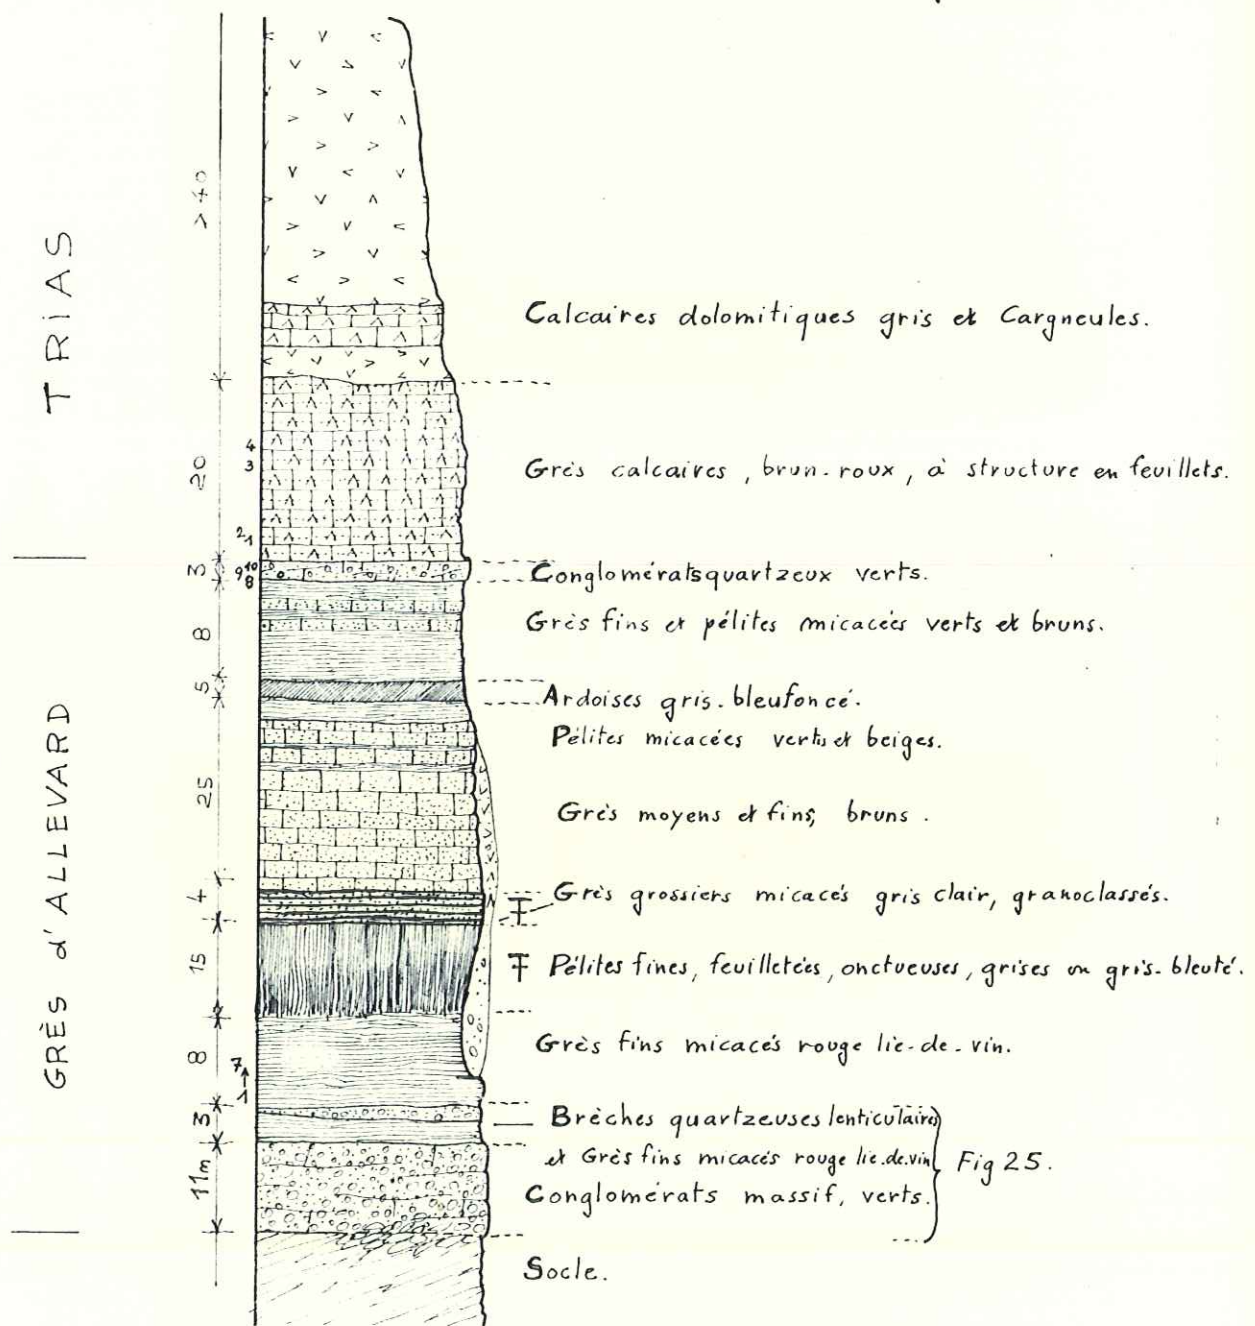 TRIAS
GRÈS d'ALLEVARD
>40
20
3
8
5
25
4
15
8
3
11m
4
3
2
1
10
9
8
7
1
Calcaires dolomitiques gris et Cargneules.
Grès calcaires, brun-roux, à structure en feuillets.
Conglomérats quartzeux verts.
Grès fins et pélites micacées verts et bruns.
Ardoises gris-bleu foncé.
Pélites micacées verts et beiges.
Grès moyens et fins, bruns.
Grès grossiers micacés gris clair, granoclassés.
Pélites fines, feuilletées, onctueuses, grises ou gris-bleuté.
Grès fins micacés rouge lie-de-vin.
Brèches quartzeuses lenticulaires
et Grès fins micacés rouge lie.de.vin
Fig 25.
Conglomérats massif, verts.
Socle.